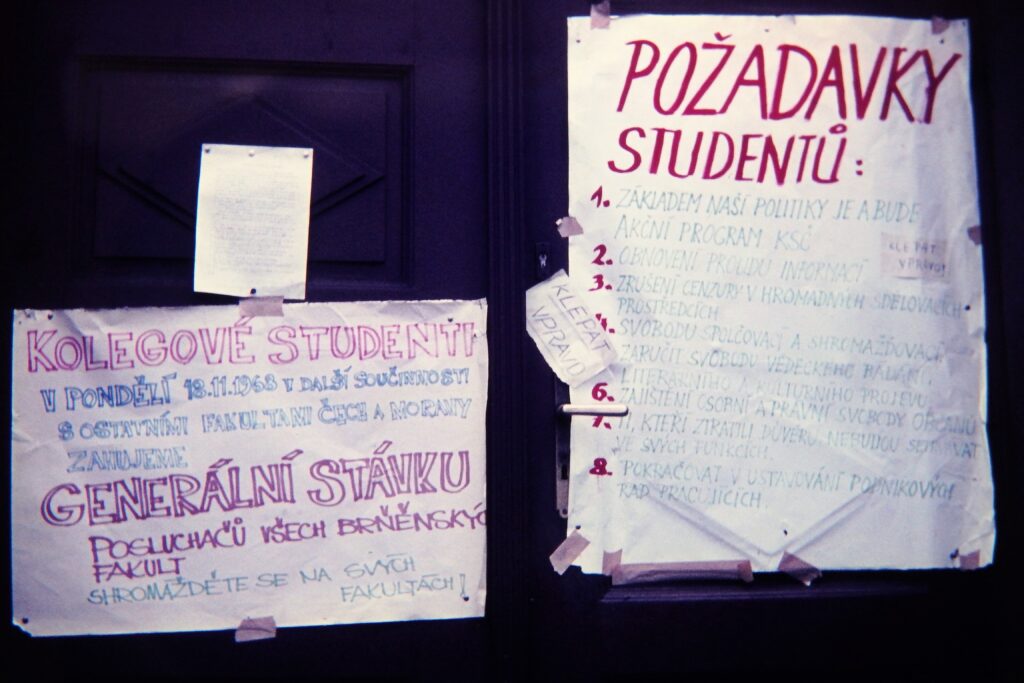 KOLEGOVÉ STUDENTI
V PONDĚLÍ 18.11.1968 V DALŠÍ SOUČINNOSTI
S OSTATNÍMI FAKULTAMI ČECH A MORAVY
ZAHUJEME
GENERÁLNÍ STÁVKU
POSLUCHAČŮ VŠECH BRŇĚNSKÝC
FAKULT
SHROMÁŽDĚTE SE NA SVÝCH
FAKULTÁCH!
KLEPAT
VPRAVO
POŽADAVKY
STUDENTŮ:
1. ZÁKLADEM NAŠÍ POLITIKY JE A BUDE
AKČNÍ PROGRAM KSČ
2. OBNOVENÍ PROUDU INFORMACÍ
3. ZRUŠENÍ CENZURY V HROMADNÝCH SDĚLOVACÍCH
PROSTŘEDCÍCH
4. SVOBODU SPOLČOVACÍ A SHROMAŽĎOVACÍ
ZARUČIT SVOBODU VĚDECKÉHO BÁDÁNÍ,
LITERÁRNÍHO A KULTURNÍHO PROJEVU
6. ZAJIŠTĚNÍ OSOBNÍ A PRÁVNÍ SVOBODY OBČANŮ
7. TI, KTEŘÍ ZTRATILI DŮVĚRU, NEBUDOU SETRVÁVAT
VE SVÝCH FUNKCÍCH.
8. POKRAČOVAT V USTAVOVÁNÍ PODNIKOVÝCH
RAD PRACUJÍCÍCH.
KLEPAT
VPRAVO!